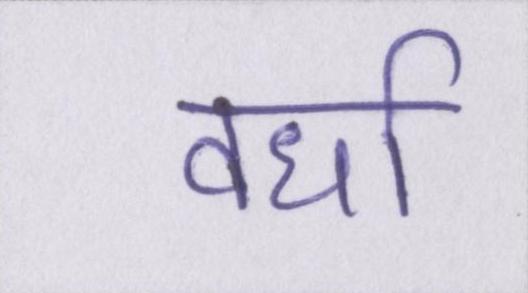 वर्धा